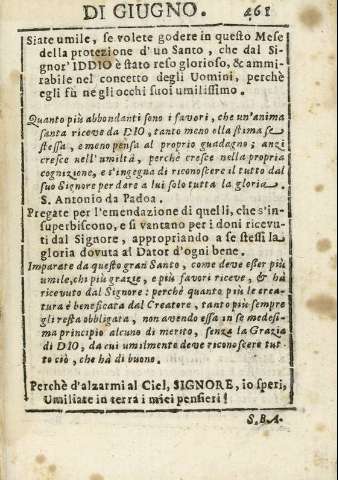 DI GIUGNO. 461
Siate umile, se volete godere in questo Mese
della protezione d'un Santo, che dal Si-
gnor' IDDIO è stato reso glorioso, & ammi-
rabile nel concetto degli Uomini, perchè
egli fù ne gli occhi suoi umilissimo.
Quanto più abbondanti sono i favori, che un'anima
santa riceve da DIO, tanto meno ella stima se
stessa, e meno pensa al proprio guadagno; anzi
cresce nell'umiltà, perchè cresce nella propria
cognizione, e s'ingegna di riconoscere il tutto dal
suo Signore per dare a lui solo tutta la gloria.
S. Antonio da Padoa.
Pregate per l'emendazione di quelli, che s'in-
superbiscono, e si vantano per i doni ricevu-
ti dal Signore, appropriando a se stessi la
gloria dovuta al Dator d'ogni bene.
Imparate da questo gran Santo, come deve esser più
umile, chi più grazie, e più favori riceve, & hà
ricevuto dal Signore: perchè quanto più le crea-
tura è beneficata dal Creatore, tanto più sempre
gli resta obbligata, non avendo essa in se medesi-
ma principio alcuno di merito, senza la Grazia
di DIO, da cui umilmente deve riconoscere tut-
to ciò, che hà di buono.
Perchè d'alzarmi al Ciel, SIGNORE, io speri,
Umiliate in terra i miei pensieri!
S.B.A.